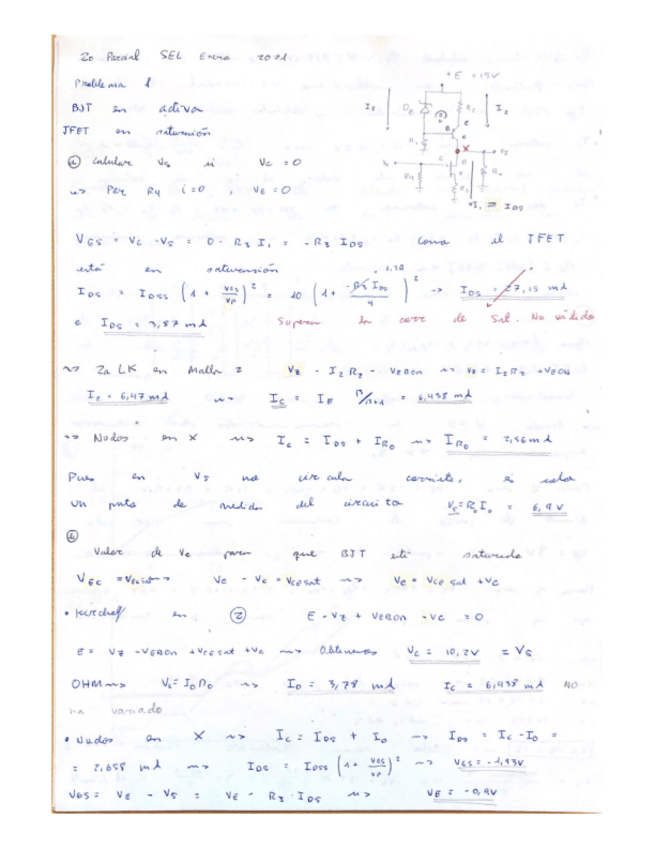 2o Parcial SEL Enero 2021
Problema 1
BJT en activa
JFET en saturación
+E = 15V
I2 DZ 2 R2 I2
B E C
X
R4 R3
I1 = IDS
a) Calcular Vs si Ve = 0
~> Por R4 i=0 , VG = 0
VGS = VG - VS = 0 - R3 I1 = -R3 IDS Como el JFET
está en saturación
IDS = IDSS (1 + VGS/VP)² = 10 (1 + -R3 IDS/4)² -> IDS = 27,15 mA
o IDS = 3,87 mA Supera la corr de Sat. No válido
~> 2a LK en Malla 2 VZ - I2R2 - VEBON ~> VZ = I2R2 + VEBON
I2 = 6,47 mA ~> IC = IE β/β+1 = 6,438 mA
~> Nudos en X ~> IC = IDS + IRO ~> IRO = 2,56 mA
Pues en Vs no circula corriente, es solo
un punto de medida del circuito Vs = RoIo = 6,9 V
b)
Valor de Ve para que BJT esté saturado
VEC = VECsat ~> VE - VC = VCEsat ~> VE = VCEsat + VC
• Kirchoff en 2 E - VZ + VEBON - VE = 0
E = VZ - VEBON + VCEsat + VC ~> Obtenemos VC = 10,2V = VS
OHM ~> Vs = IoRo ~> Io = 3,78 mA IC = 6,438 mA NO
ha variado
• Nudos en X ~> IC = IDS + Io ~> IDS = IC - Io =
= 2,658 mA ~> IDS = IDSS (1 + VGS/VP)² ~> VGS = -1,93V
VGS = VE - VS = VE - R3 · IDS ~> VE = -0,9V